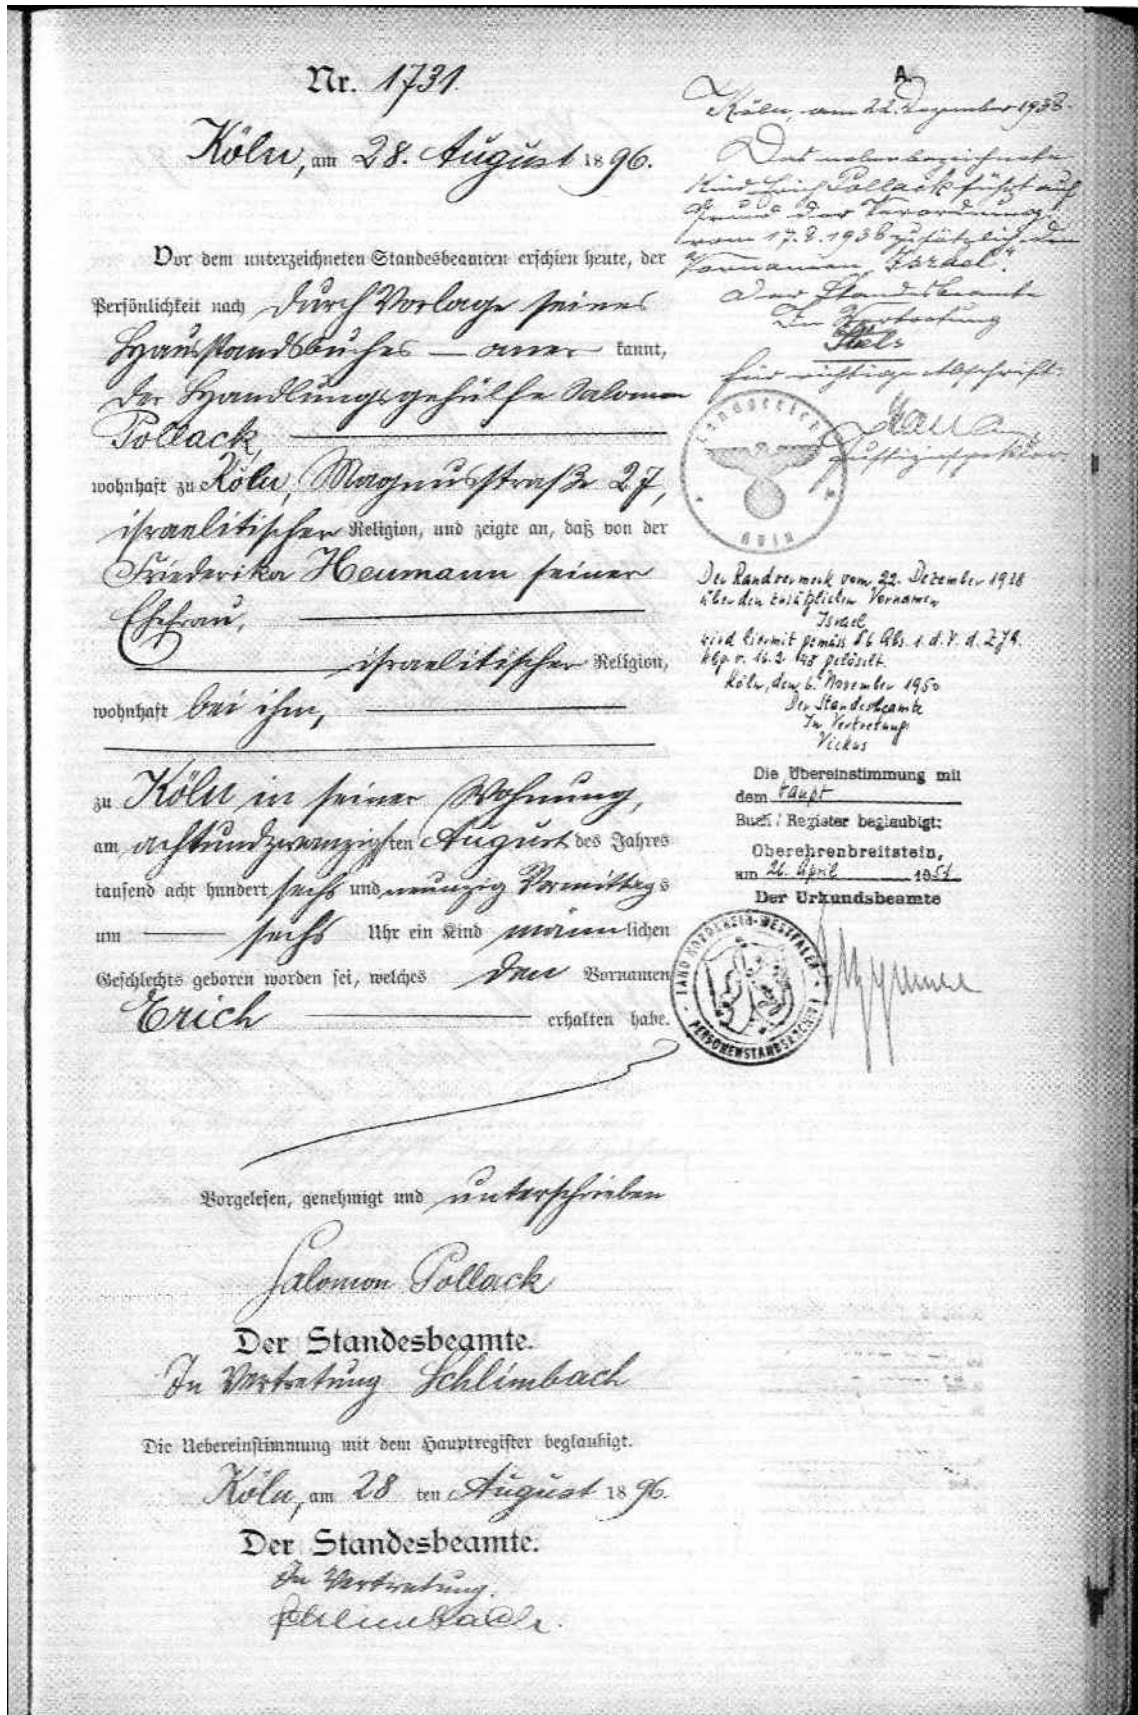 Nr. 1731.
Köln, am 28. August 1896.
Vor dem unterzeichneten Standesbeamten erschien heute, der
Persönlichkeit nach durch Vorlage seines
Hausstandsbuches — aner kannt,
der Handlungsgehülfe Salomon
Pollack,
wohnhaft zu Köln, Magnusstraße 27,
israelitischer Religion, und zeigte an, daß von der
Friederika Heumann seiner
Ehefrau,
israelitischer Religion,
wohnhaft bei ihm,
zu Köln in seiner Wohnung,
am achtundzwanzigsten August des Jahres
tausend acht hundert sechs und neunzig Vormittags
um sechs Uhr ein Kind männlichen
Geschlechts geboren worden sei, welches den Vornamen
Erich erhalten habe.
Vorgelesen, genehmigt und unterschrieben
Salomon Pollack
Der Standesbeamte.
In Vertretung Schlimbach
Die Uebereinstimmung mit dem Hauptregister beglaubigt.
Köln, am 28 ten August 1896.
Der Standesbeamte.
In Vertretung.
Schlimbach.
A.
Köln, am 22. Dezember 1938.
Das nebenbezeichnete
Kind Erich Pollack führt auf
Grund der Verordnung
vom 17.8.1938 zusätzlich den
Vornamen „Israel".
Der Standesbeamte
In Vertretung
Für richtige Abschrift:
Justizinspektor
Landgericht
Köln
Der Randvermerk vom 22. Dezember 1938
über den zusätzlichen Vornamen
Israel
wird hiermit gemäss § 6 Abs. 1. d. V. d. Z.J.A.
v. 16.2. 48 gelöscht.
Köln, den 6. November 1950
Der Standesbeamte
In Vertretung:
Vickus
Die Übereinstimmung mit
dem Haupt
Buch / Register beglaubigt:
Oberehrenbreitstein,
am 26. April 1951
Der Urkundsbeamte
LAND NORDRHEIN-WESTFALEN
PERSONENSTANDSARCHIV